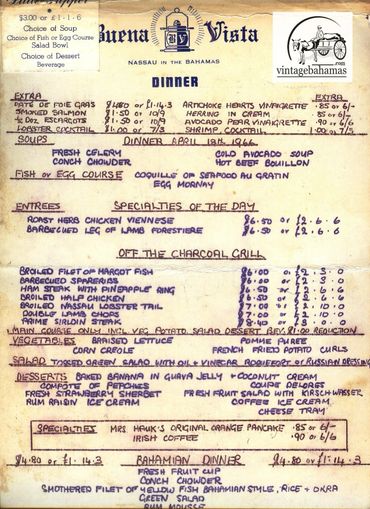 $3.00 or £1-1-6
Choice of Soup
Choice of Fish or Egg Course
Salad Bowl
Choice of Dessert
Beverage
Buena Vista
NASSAU IN THE BAHAMAS
vintagebahamas
.com
DINNER
EXTRA EXTRA
PATE DE FOIE GRAS $4.80 or £1.14.3 ARTICHOKE HEARTS VINAIGRETTE .85 or 6/-
SMOKED SALMON $1.50 or 10/9 HERRING IN CREAM .85 or 6/-
½ DOZ ESCARGOTS $1.50 or 10/9 AVOCADO PEAR VINAIGRETTE .90 or 6/6
LOBSTER COCKTAIL $1.00 or 7/3 SHRIMP COCKTAIL 1.00 or 7/3
SOUPS DINNER APRIL 18TH 1966
FRESH CELERY COLD AVOCADO SOUP
CONCH CHOWDER HOT BEEF BOUILLON
FISH or EGG COURSE COQUILLE OF SEAFOOD AU GRATIN
EGG MORNAY
ENTREES SPECIALTIES OF THE DAY
ROAST HERB CHICKEN VIENNESE $6.50 or £2.6.6
BARBECUED LEG OF LAMB FORESTIERE $6.50 or £2.6.6
OFF THE CHARCOAL GRILL
BROILED FILET OF MARGOT FISH $6.00 or £2.3.0
BARBECUED SPARERIBS $6.00 or £2.3.0
HAM STEAK WITH PINEAPPLE RING $6.50 or £2.6.6
BROILED HALF CHICKEN $6.50 or £2.6.6
BROILED NASSAU LOBSTER TAIL $7.00 or £2.10.0
DOUBLE LAMB CHOPS $7.00 or £2.10.0
PRIME SIRLOIN STEAK $8.40 or £3.0.0
MAIN COURSE ONLY INCL VEG POTATO SALAD DESSERT BEV. $1.00 REDUCTION
VEGETABLES BRAISED LETTUCE POMME PUREE
CORN CREOLE FRENCH FRIED POTATO CURLS
SALAD TOSSED GREEN SALAD WITH OIL & VINEGAR ROQUEFORT or RUSSIAN DRESSING
DESSERTS BAKED BANANA IN GUAVA JELLY & COCONUT CREAM
COMPOTE OF PEACHES COUPE DELORES
FRESH STRAWBERRY SHERBET FRESH FRUIT SALAD WITH KIRSCHWASSER
RUM RAISIN ICE CREAM COFFEE ICE CREAM
CHEESE TRAY
SPECIALTIES MRS HAUK'S ORIGINAL ORANGE PANCAKE .85 or 6/-
IRISH COFFEE .90 or 6/6
$4.80 or £1.14.3 BAHAMIAN DINNER $4.80 or £1.14.3
FRESH FRUIT CUP
CONCH CHOWDER
SMOTHERED FILET OF YELLOW FISH BAHAMIAN STYLE, RICE & OKRA
GREEN SALAD
RUM MOUSSE